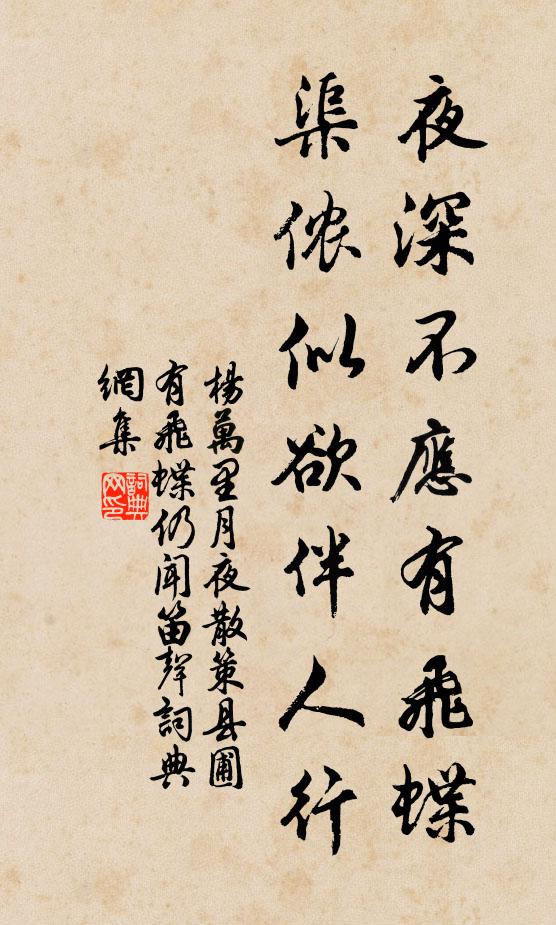 夜深不應有飛蝶
渠侬似欲伴人行
楊萬里月夜散策县圃
有飛蝶仍闻笛聲詞典
網集
詞典
网印